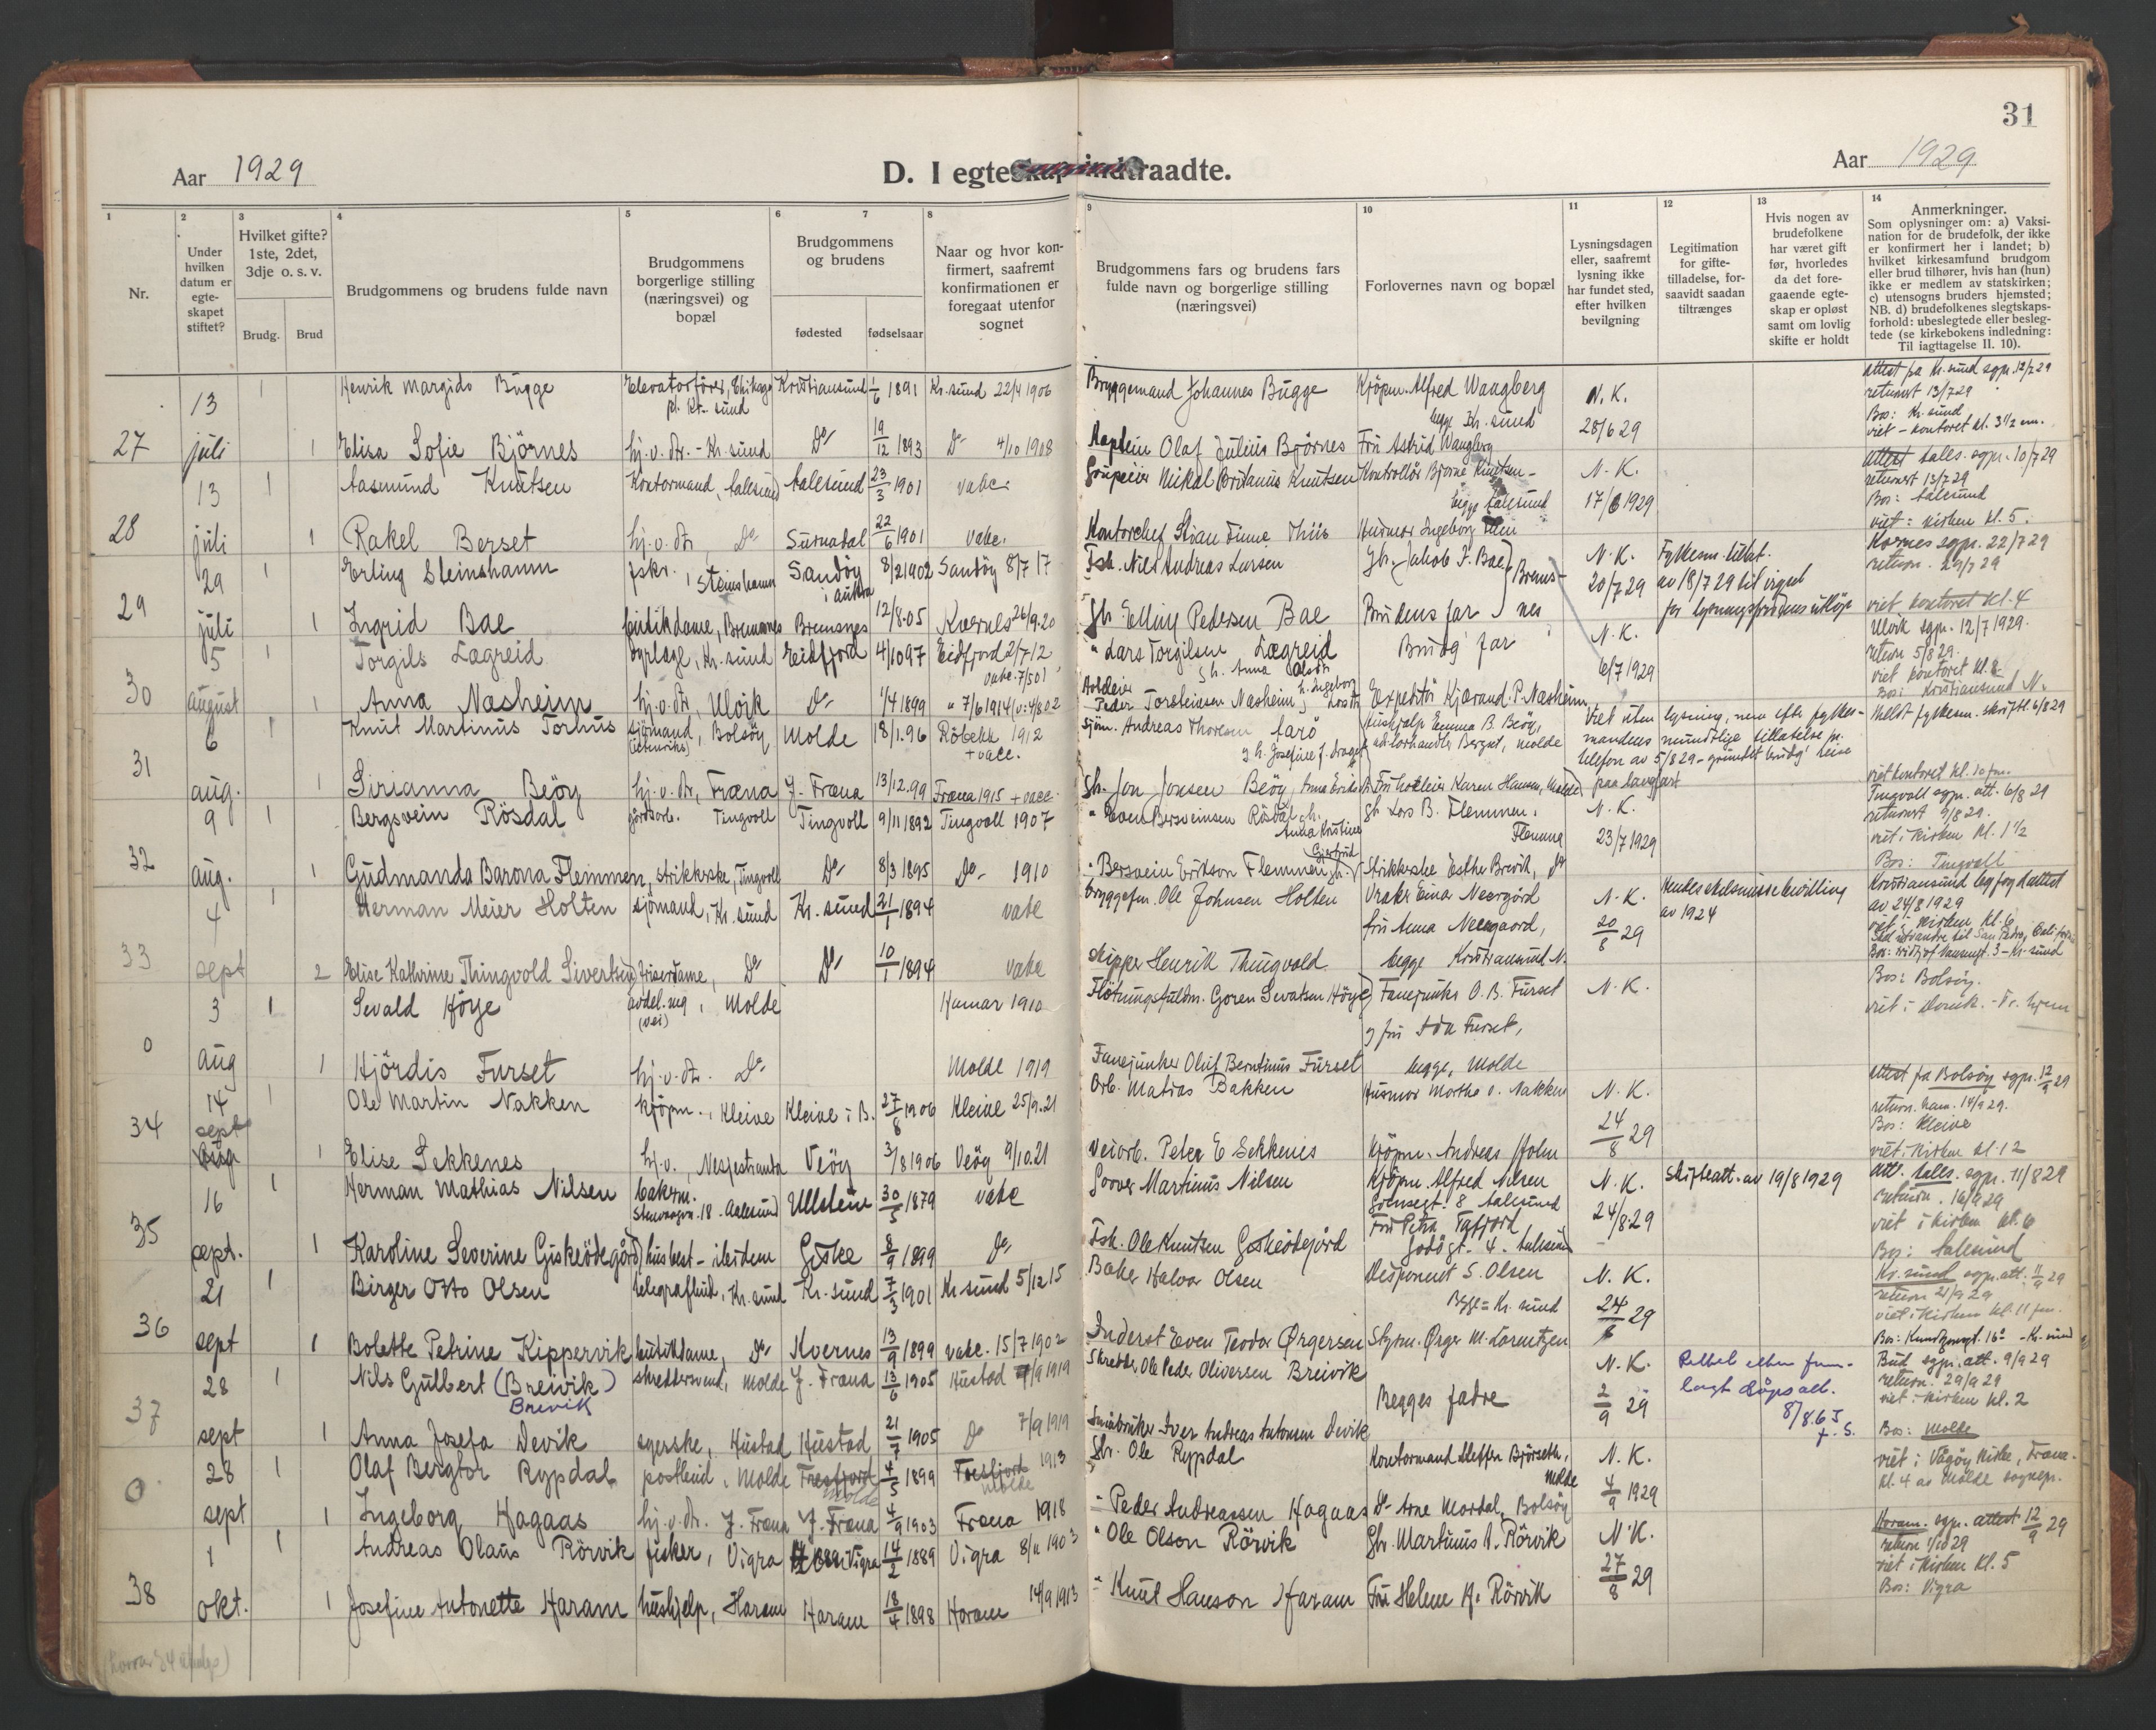 31
Aar 1929
D. I egteskap indtraadte.
Aar 1929
1
2
3
4
5
6
7
8
9
10
11
12
13
14
Nr.
Under hvilken datum er egte-skapet stiftet?
Hvilket gifte? 1ste, 2det, 3dje o. s. v.
Brudg.
Brud
Brudgommens og brudens fulde navn
Brudgommens borgerlige stilling (næringsvei) og bopæl
Brudgommens og brudens
fødested
fødselsaar
Naar og hvor kon-firmert, saafremt konfirmationen er foregaat utenfor sognet
Brudgommens fars og brudens fars fulde navn og borgerlige stilling (næringsvei)
Forlovernes navn og bopæl
Lysningsdagen eller, saafremt lysning ikke har fundet sted, efter hvilken bevilgning
Legitimation for gifte-tilladelse, for-saavidt saadan tiltrænges
Hvis nogen av brudefolkene har været gift før, hvorledes da det fore-gaaende egte-skap er opløst samt om lovlig skifte er holdt
Anmerkninger.
Som oplysninger om: a) Vaksi-nation for de brudefolk, der ikke er konfirmert her i landet; b) hvilket kirkesamfund brudgom eller brud tilhører, hvis han (hun) ikke er medlem av statskirken; c) utensogns bruders hjemsted; NB. d) brudefolkenes slegtskaps-forhold: ubeslegtede eller besleg-tede (se kirkebokens indledning: Til iagttagelse II. 10).
13 1 Henrik Margido Bugge Elevatorfører, Chikago Kristiansund 1/6 1891 Kr.sund 22/4 1906 Bryggemand Johannes Bugge Kjöpm. Alfred Waagberg N. K. attest fra Kr.sund sgpr. 12/7 29
p.t. Kr. sund begge Kr. sund 28/6 29 returnert 13/7 29
Bos: Kr. sund
viet - kontoret kl. 3½ em.
27 juli 1 Elisa Sofie Björnes hj.v.dr. - Kr. sund Do 19/12 1893 Do 4/10 1908 Kaptein Olaf Julius Bjørnes Fru Astrid Waagberg
13 1 Aasmund Knutsen Kontormand, Aalesund Aalesund 23/3 1901 vabc. Mikal Britanus Knutsen Kontrollør Bjarne Knutsen - N. K. attest Aalls. sgpr. 10/7 29
begge Aalesund 17/6 1929 returnert 13/7 29
Bos: Aalesund
viet: kirken kl. 5.
28 juli 1 Rakel Berset hj.v.dr, Do Surnadal 22/6 1901 vabc. Kontorchef Stian Finne Thiis Husmor Ingeborg
29 1 Erling Steinshamn fskr., Steinshamn Sandöy i Aukra 8/2 1902 Sandöy 8/7 17 Fsk. Nils Andreas Larsen Gbr. Jakob P. Bae, Brems- N. K. Fylkesm. tillat. Kornes sgpr. 22/7 29
20/7 29 av 18/7 29 til vigsel return. 29/7 29
29 juli 1 Ingrid Bae butikdame, Bremsnes Bremsnes 12/8.05 Kvernes 26/9.20 Gbr. Elling Pedersen Bae Brudens far nes før lysningsfristens utlöp viet kontoret kl. 4
5 1 Torgils Lægreid dyrlæge, Kr. sund Eidfjord 4/10 97 Eidfjord 2/7 12 " Lars Torgilsen Lægreid Brudg far N. K. Ulvik sgpr. 12/7 1929.
6/7 1929 return 5/8 29.
viet kontoret kl. 2
Bos: Kristiansund N.
30 august 1 Anna Nasheim hj.v.dr, Ulvik Do 1/4 1899 " 7/6 1914 Peder Torsteinsen Nasheim, Expeditör Kjærand P. Nasheim
6 1 Knut Martinus Torhus sjömand, Bolsöy Molde 18/1.96 Röbekk 1912 + vacc. Sjöm. Andreas Thoresen Farö hushjelp Emma B. Beöy, Viet uten lysning, men efter fylkes- Meldt fylkesm. skriftl. 6/8 29
Molde mandens mundtlige tillatelse pr.
telefon av 5/8 29 - grundet brudg' reise
paa langfart
31 aug. 1 Sirianna Beöy hj.v.dr, Fræna J. Fræna 13/12.99 Fræna 1915 + vacc. Gbr. Jon Jonsen Beöy, Fru hoteleier Karen Hansen, Molde viet kontoret kl. 10 fm.
9 1 Bergsvein Rösdal gårdsarb. Tingvoll Tingvoll 9/11 1892 Tingvoll 1907 " Even Bersveinsen Rösdal gh. Anna Kristine Gbr. Lars B. Flemmen. N. K. Tingvoll sgpr. att. 6/8 29
Flemma 23/7 1929 returnert 9/8 29.
viet i kirken kl. 1½
Bos: Tingvoll
32 aug. 1 Gudmanda Barona Flemmen, strikkerske, Tingvoll Do 8/3 1895 Do 1910 " Bersvein Erikson Flemmen Strikkerske Esther Brevik, Do
4 1 Herman Meier Holten sjömand, Kr. sund Kr. sund 21/1 1894 vabc Bryggefm. Ole Johnsen Holten Vraker Einar Neergård N. K. Hendes skilsmissebevilling Kristiansund byfogd attest
fru Anna Neergaard, 20/8 29 av 1924 av 24/8 1929
viet: kirken kl. 6
Skal utvandre til San Pedro, California
33 sept 2 Elise Kathrine Thingvold Sivertsen, Do Do 10/1 1894 vabc Skipper Henrik Thingvold begge Kristiansund N. Kr. sund
3 1 Sevald Höye avdel.ing, Molde Hamar 1910 Flötningsfuldm. Goren Sevatsen Höye Fanejunker O. B. Furset N. K. Bos: Bolsöy.
(vei) og fru Ada Furset,
0 aug 1 Hjördis Furset hj.v.dr. Do Molde 1919 Fanejunker Oluf Berntinus Furset begge, Molde
14 1 Ole Martin Nakken Kjöpm., Kleive Kleive i B. 27/8 1906 Kleive 25/9.21 Arb. Matias Bakken Husmor Marthe O. Nakken N. K. attest fra Bolsöy sgpr. 12/9 29
24/8 29 return. ham. 14/9 29.
Bos: Kleive
34 sept aug 1 Elise Sekkenes hj.v., Nesjestranda Veöy 3/8 1906 Veöy 9/10.21 Veiarb. Peter E Sekkenes Kjöpm. Andreas Holm viet: kirken kl. 12
16 1 Herman Mathias Nilsen bakerm. Ullstein 30/5 1879 vabc Martinus Nilsen Kjöpm. Alfred Nilsen N. K. Skifteatt. av 19/8 1929 att. Aalls. sgpr. 11/8 29
18. Aalesund 8 Aalesund 24/8 29 return. 16/9 29
Fru Petra Tafjord, viet i kirken kl. 6
35 sept. 1 Karoline Severine Giskeödegård husbest - ibidem Giske 8/9 1899 Do Fsk. Ole Knutsen Giskeödegård Godö gt. 4. Aalesund Bos: Aalesund
21 1 Birger Otto Olsen telegrafbud, Kr. sund Kr. sund 7/3 1901 Kr. sund 5/12 15 Baker Halvor Olsen Disponent S. Olsen N. K. Kr. sund sgpr. att. 11/9 29
Begge = Kr. sund 24/8 29 return 21/9 29
viet i kirken kl. 11 fm.
36 sept 1 Bolette Petrine Kippervik butikkdame, Do Kvernes 13/9 1899 vabc. 15/7 1902 Inderst Even Teodor Ørgersen Stypm. Ørger M. Lorentzen Kr. sund
28 1 Nils Gulbert (Breivik) skreddersvend, Molde J. Fræna 13/6 1905 Hustad 7/9 1919 Skredder Ole Peder Oliversen Breivik N. K. Rettet etter frem- Bud sgpr. att. 9/9 29
Brevik Begges fedre 2/9 29 lagt dåpsatt. return. 29/9 29
8/8.65 viet: kirken kl. 2
37 sept 1 Anna Josefa Devik syerske, Hustad Hustad 21/7 1905 Do 7/9 1919 Småbruker Iver Andreas Antonsen Devik Bos: Molde
28 1 Olaf Bergtor Rypdal postbud, Molde Tresfjord Molde 4/5 1899 Tresfjord Molde 1913 Gbr. Ole Rypdal Kontormand Steffen Björseth, Molde N. K. viet i Vågöy kirke, Fræna.
4/9 1929 kl. 4 av Molde sognepr.
0 sept 1 Ingeborg Hagaas hj.v.dr. J. Fræna J. Fræna 4/9 1903 Fræna 1918 " Peder Andreassen Hagaas Do Arne Mordal, Bolsöy
1 1 Andreas Olaus Rörvik fisker, Vigra Vigra 14/2 1889 Vigra 8/11 1903 " Ole Olson Rörvik Gbr. Martinus A. Rörvik N. K. Haram. sgpr. attest 12/9 29
27/8 29 return 1/10 29
viet i kirken kl. 5
Bos: Vigra
38 okt. 1 Josefine Antonette Haram hushjelp, Haram Haram 18/4 1898 Haram 14/9 1913 " Knut Hanson Haram Fru Helene K. Rörvik